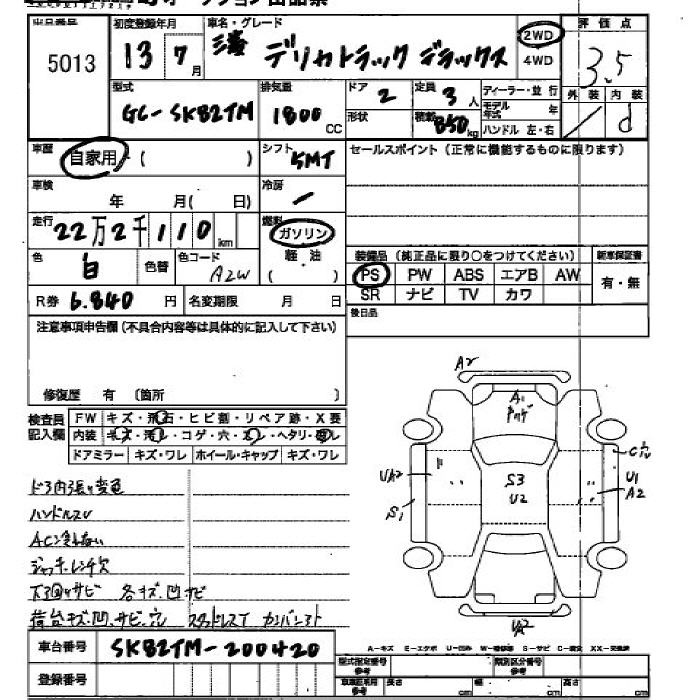 出品番号 初度登録年月 車名・グレード 2WD 評価点
5013 13 7月 三菱 デリカトラック デラックス 4WD 3.5
型式 排気量 ドア 2 定員 3人 ディーラー・並行 外装 内装
GC-SK82TM 1800CC 形状 積載 850kg モデル年式 年 d
ハンドル 左・右
車歴 自家用・( ) シフト 5MT セールスポイント (正常に機能するものに限ります)
車検 年 月( 日) 冷房
走行 22万2千110km 燃料 ガソリン
色 白 色替 色コード A2W 軽・油 ( )
装備品 (純正品に限り○をつけてください) 新車保証書
PS PW ABS エアB AW 有・無
SR ナビ TV カワ
R券 6.840円 名変期限 月 日
後日品
注意事項申告欄(不具合内容等は具体的に記入して下さい)
修復歴 有 (箇所 )
検査員記入欄 FW キズ・飛石・ヒビ割・リペア跡・X要
内装 キズ・汚レ・コゲ・穴・ヘタリ
ドアミラー キズ・ワレ ホイール・キャップ キズ・ワレ
A2
A1
UA2
S3
U2
U1
A2
S1
C穴
ドア内張り変色
ハンドルスレ
下回りサビ 各キズ凹サビ
荷台キズ凹サビ穴 スタッドレスT
UA2
車台番号 SK82TM-200420
A-キズ E-エクボ U-凹み W-補修等 S-サビ C-腐食 XX-交換済
登録番号
型式指定番号 参考 類別区分番号 参考
長さ cm 幅 cm 高さ cm